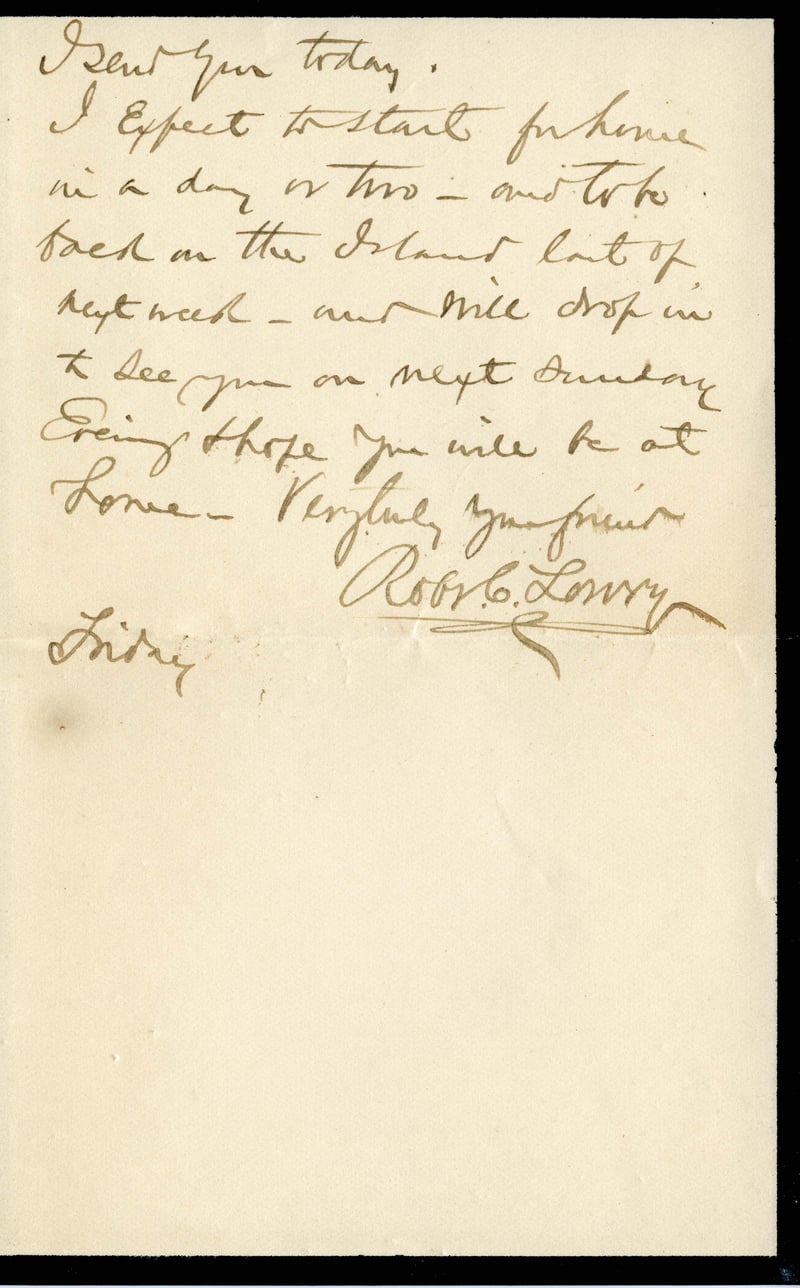 I send you today.
I Expect to start for home
in a day or two – and to be
back on the Island last of
next week – and will drop in
to see you on next Sunday
Evening & hope you will be at
Home – Very truly your friend
Robt. C. Lowry
Friday